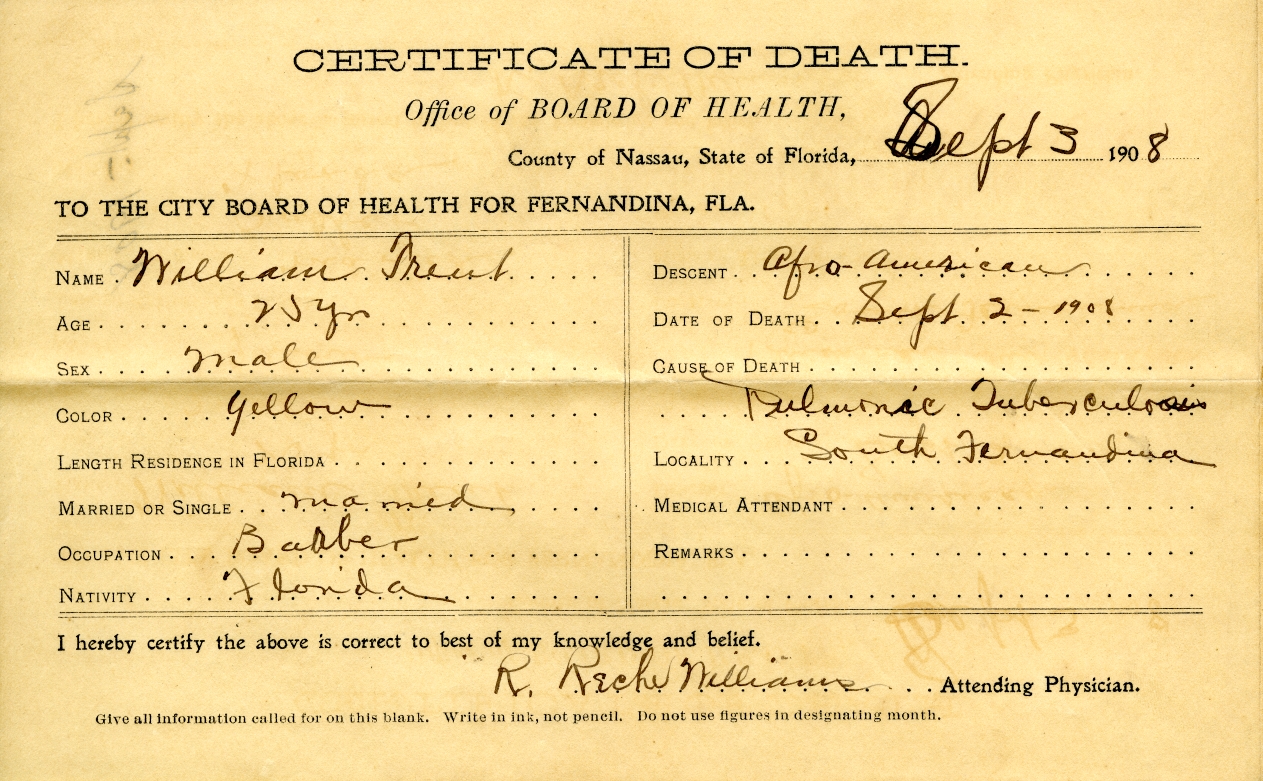 CERTIFICATE OF DEATH.
Office of BOARD OF HEALTH,
County of Nassau, State of Florida, Sept 3 1908
TO THE CITY BOARD OF HEALTH FOR FERNANDINA, FLA.
NAME William Trent
AGE 25 yrs
SEX male
COLOR yellow
LENGTH RESIDENCE IN FLORIDA
MARRIED OR SINGLE married
OCCUPATION Barber
NATIVITY Florida
DESCENT Afro-American
DATE OF DEATH Sept 2 - 1908
CAUSE OF DEATH
Pulmonic Tuberculosis
LOCALITY South Fernandina
MEDICAL ATTENDANT
REMARKS
I hereby certify the above is correct to best of my knowledge and belief.
R. Williams Attending Physician.
Give all information called for on this blank. Write in ink, not pencil. Do not use figures in designating month.